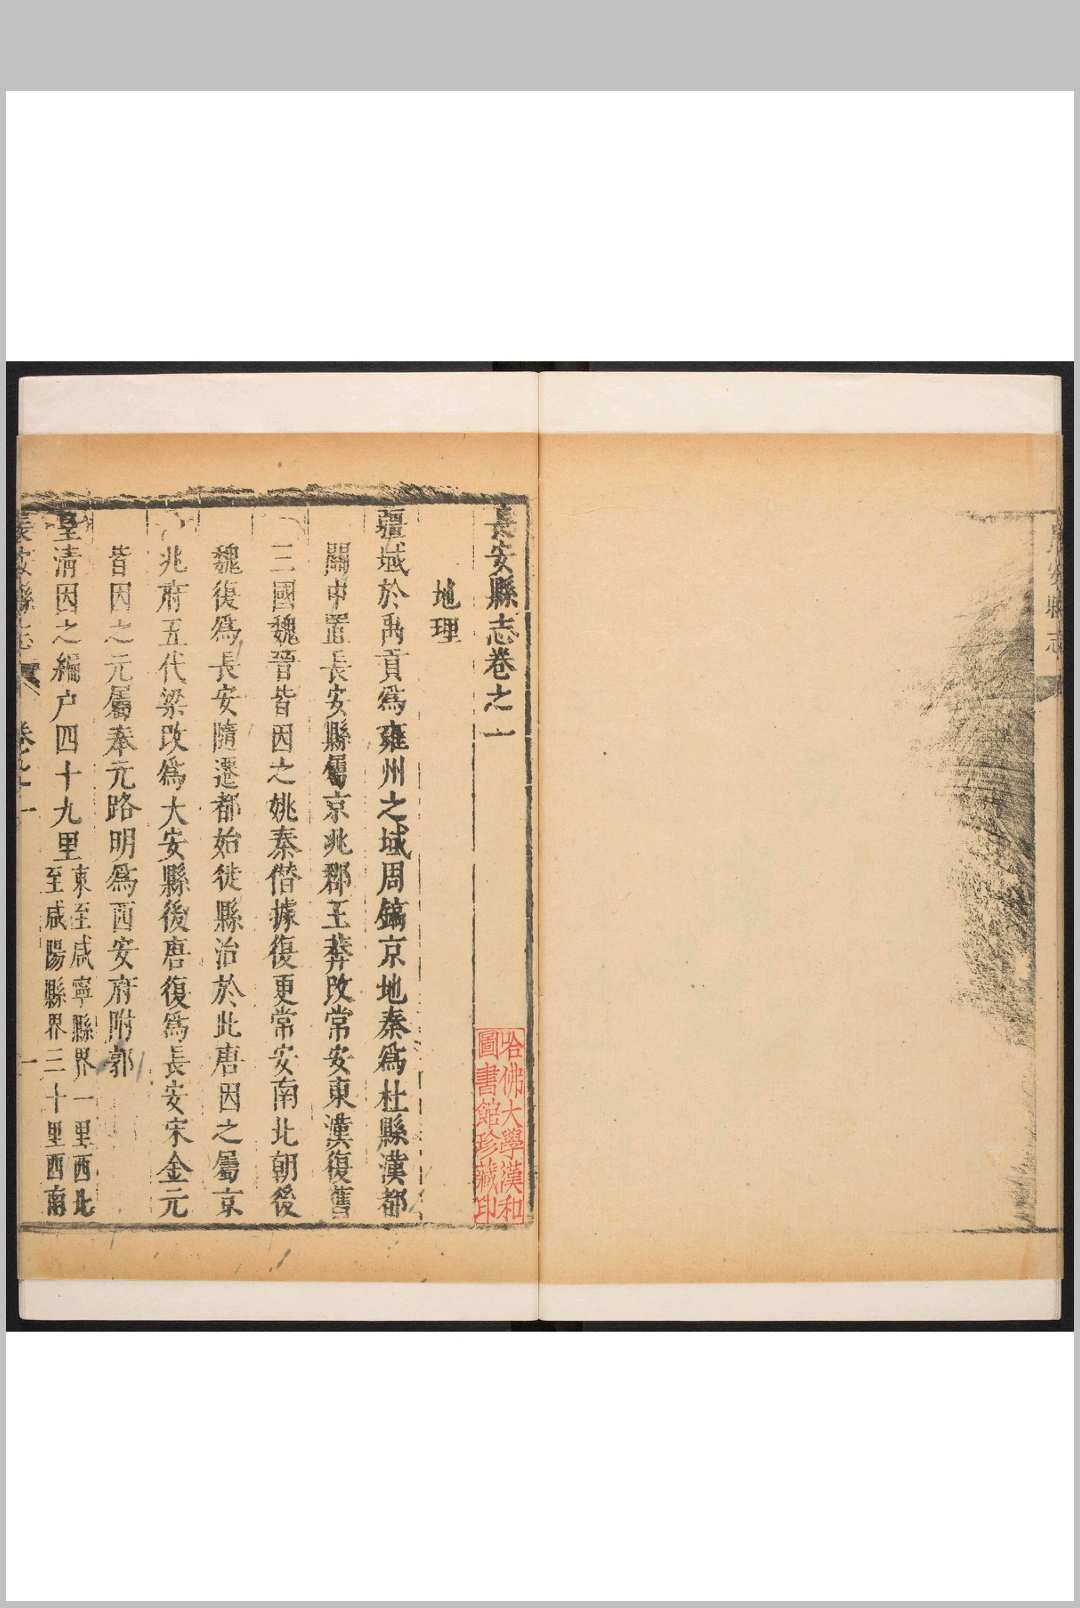 長安縣志卷之一
地理
疆域於禹貢爲雍州之域周鎬京地秦爲杜縣漢都
關中置長安縣屬京兆郡王莽改常安東漢復舊
三國魏晉皆因之姚秦僭據復更常安南北朝後
魏復爲長安隋遷都始徙縣治於此唐因之屬京
兆府五代梁改爲大安縣後唐復爲長安宋金元
皆因之元屬奉元路明爲西安府附郭
皇清因之編户四十九里
東至咸寧縣界一里西北
至咸陽縣界三十里西南
長安縣志
卷之一
一
哈佛大學漢和
圖書館珍藏印
長安縣志